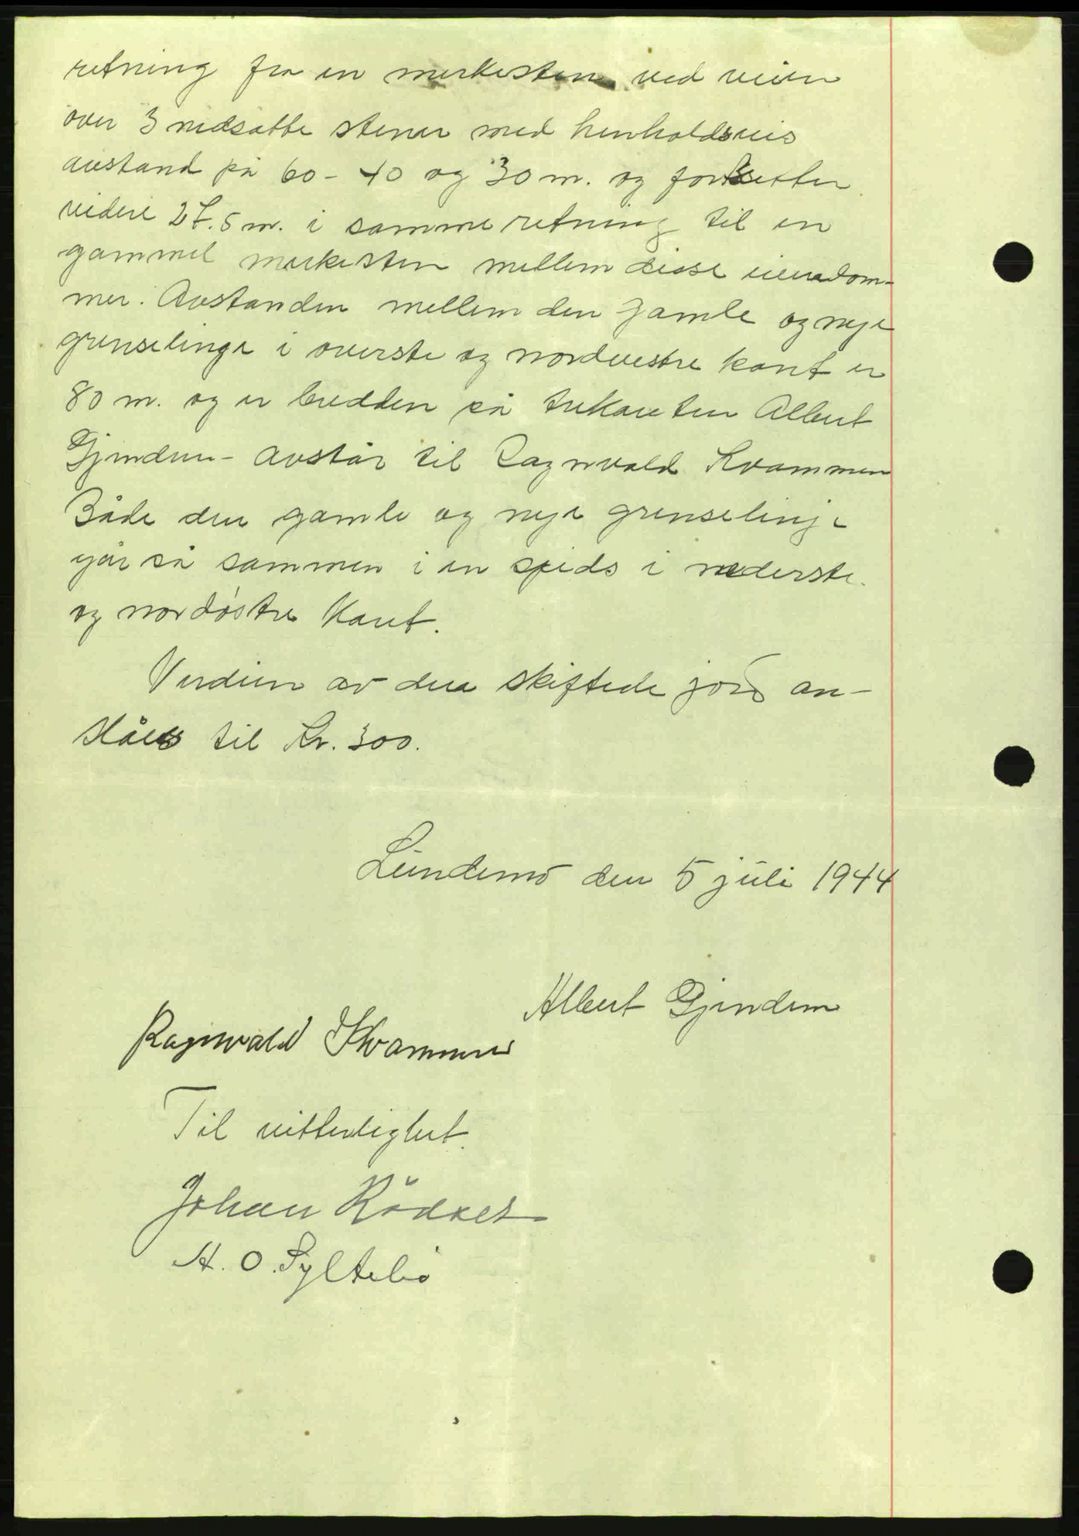 retning fra en merkesten ved veien
over 3 nedsatte stener med henholdsvis
avstand på 60 - 40 og 30 m. og fortsetter
videre 27.5 m. i samme retning til en
gammel merkesten mellem disse eiendom-
mer. Avstanden mellem den gamle og nye
grenselinge i øverste og nordvestre kant er
80 m. og er bredden på trekanten Albert
Gjendem - avstår til Ragnvald Kvammen
Både den gamle og nye grenselinje
går så sammen i en spids i nederste
og nordøstre kant.
Verdien av den skiftede jord an-
slåes til Kr. 300.
Lindemo den 5 juli 1944
Albert Gjendem
Ragnvald Kvammen
Til vitterlighet.
Johan Rödset
A. O. Syltebö